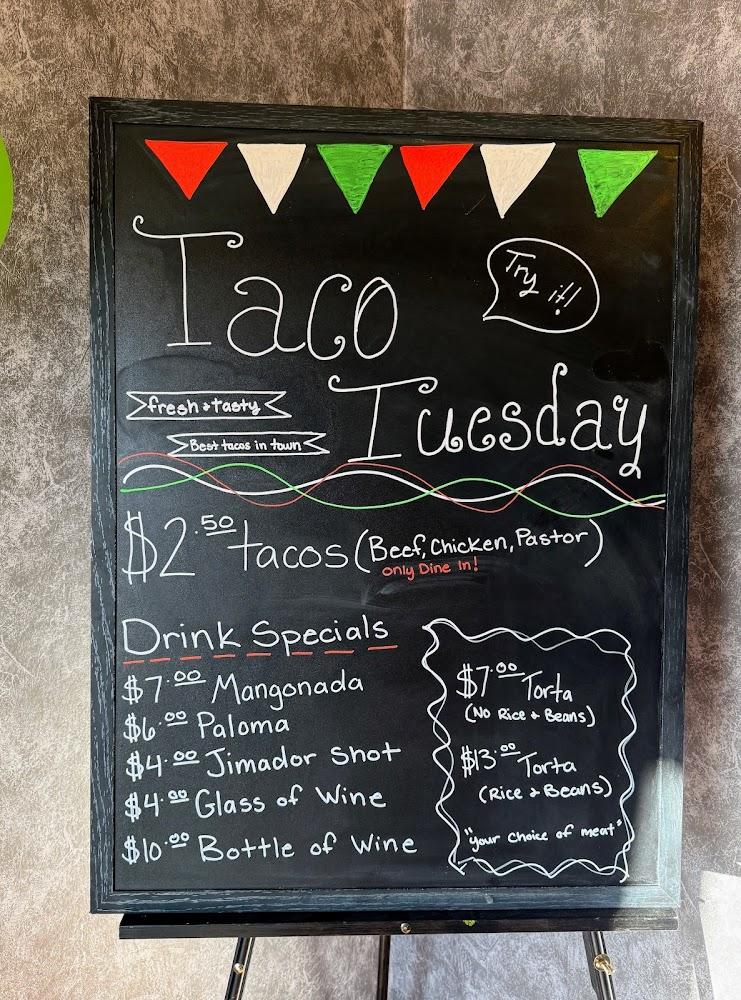 Taco
Try it!!
Tuesday
fresh & tasty
Best tacos in town
$2.50 tacos (Beef, Chicken, Pastor)
only Dine In!
Drink Specials
$7.00 Mangonada
$6.00 Paloma
$4.00 Jimador Shot
$4.00 Glass of Wine
$10.00 Bottle of Wine
$7.00 Torta
(No Rice & Beans)
$13.00 Torta
(Rice & Beans)
"your choice of meat"